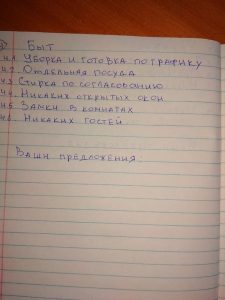 БЫТ
4.1. УБОРКА И ГОТОВКА ПО ГРАФИКУ
4.2. ОТДЕЛЬНАЯ ПОСУДА
4.3. СТИРКА ПО СОГЛАСОВАНИЮ
4.4. НИКАКИХ ОТКРЫТЫХ ОКОН
4.5. ЗАМКИ В КОМНАТАХ
4.6. НИКАКИХ ГОСТЕЙ
ВАШИ ПРЕДЛОЖЕНИЯ: